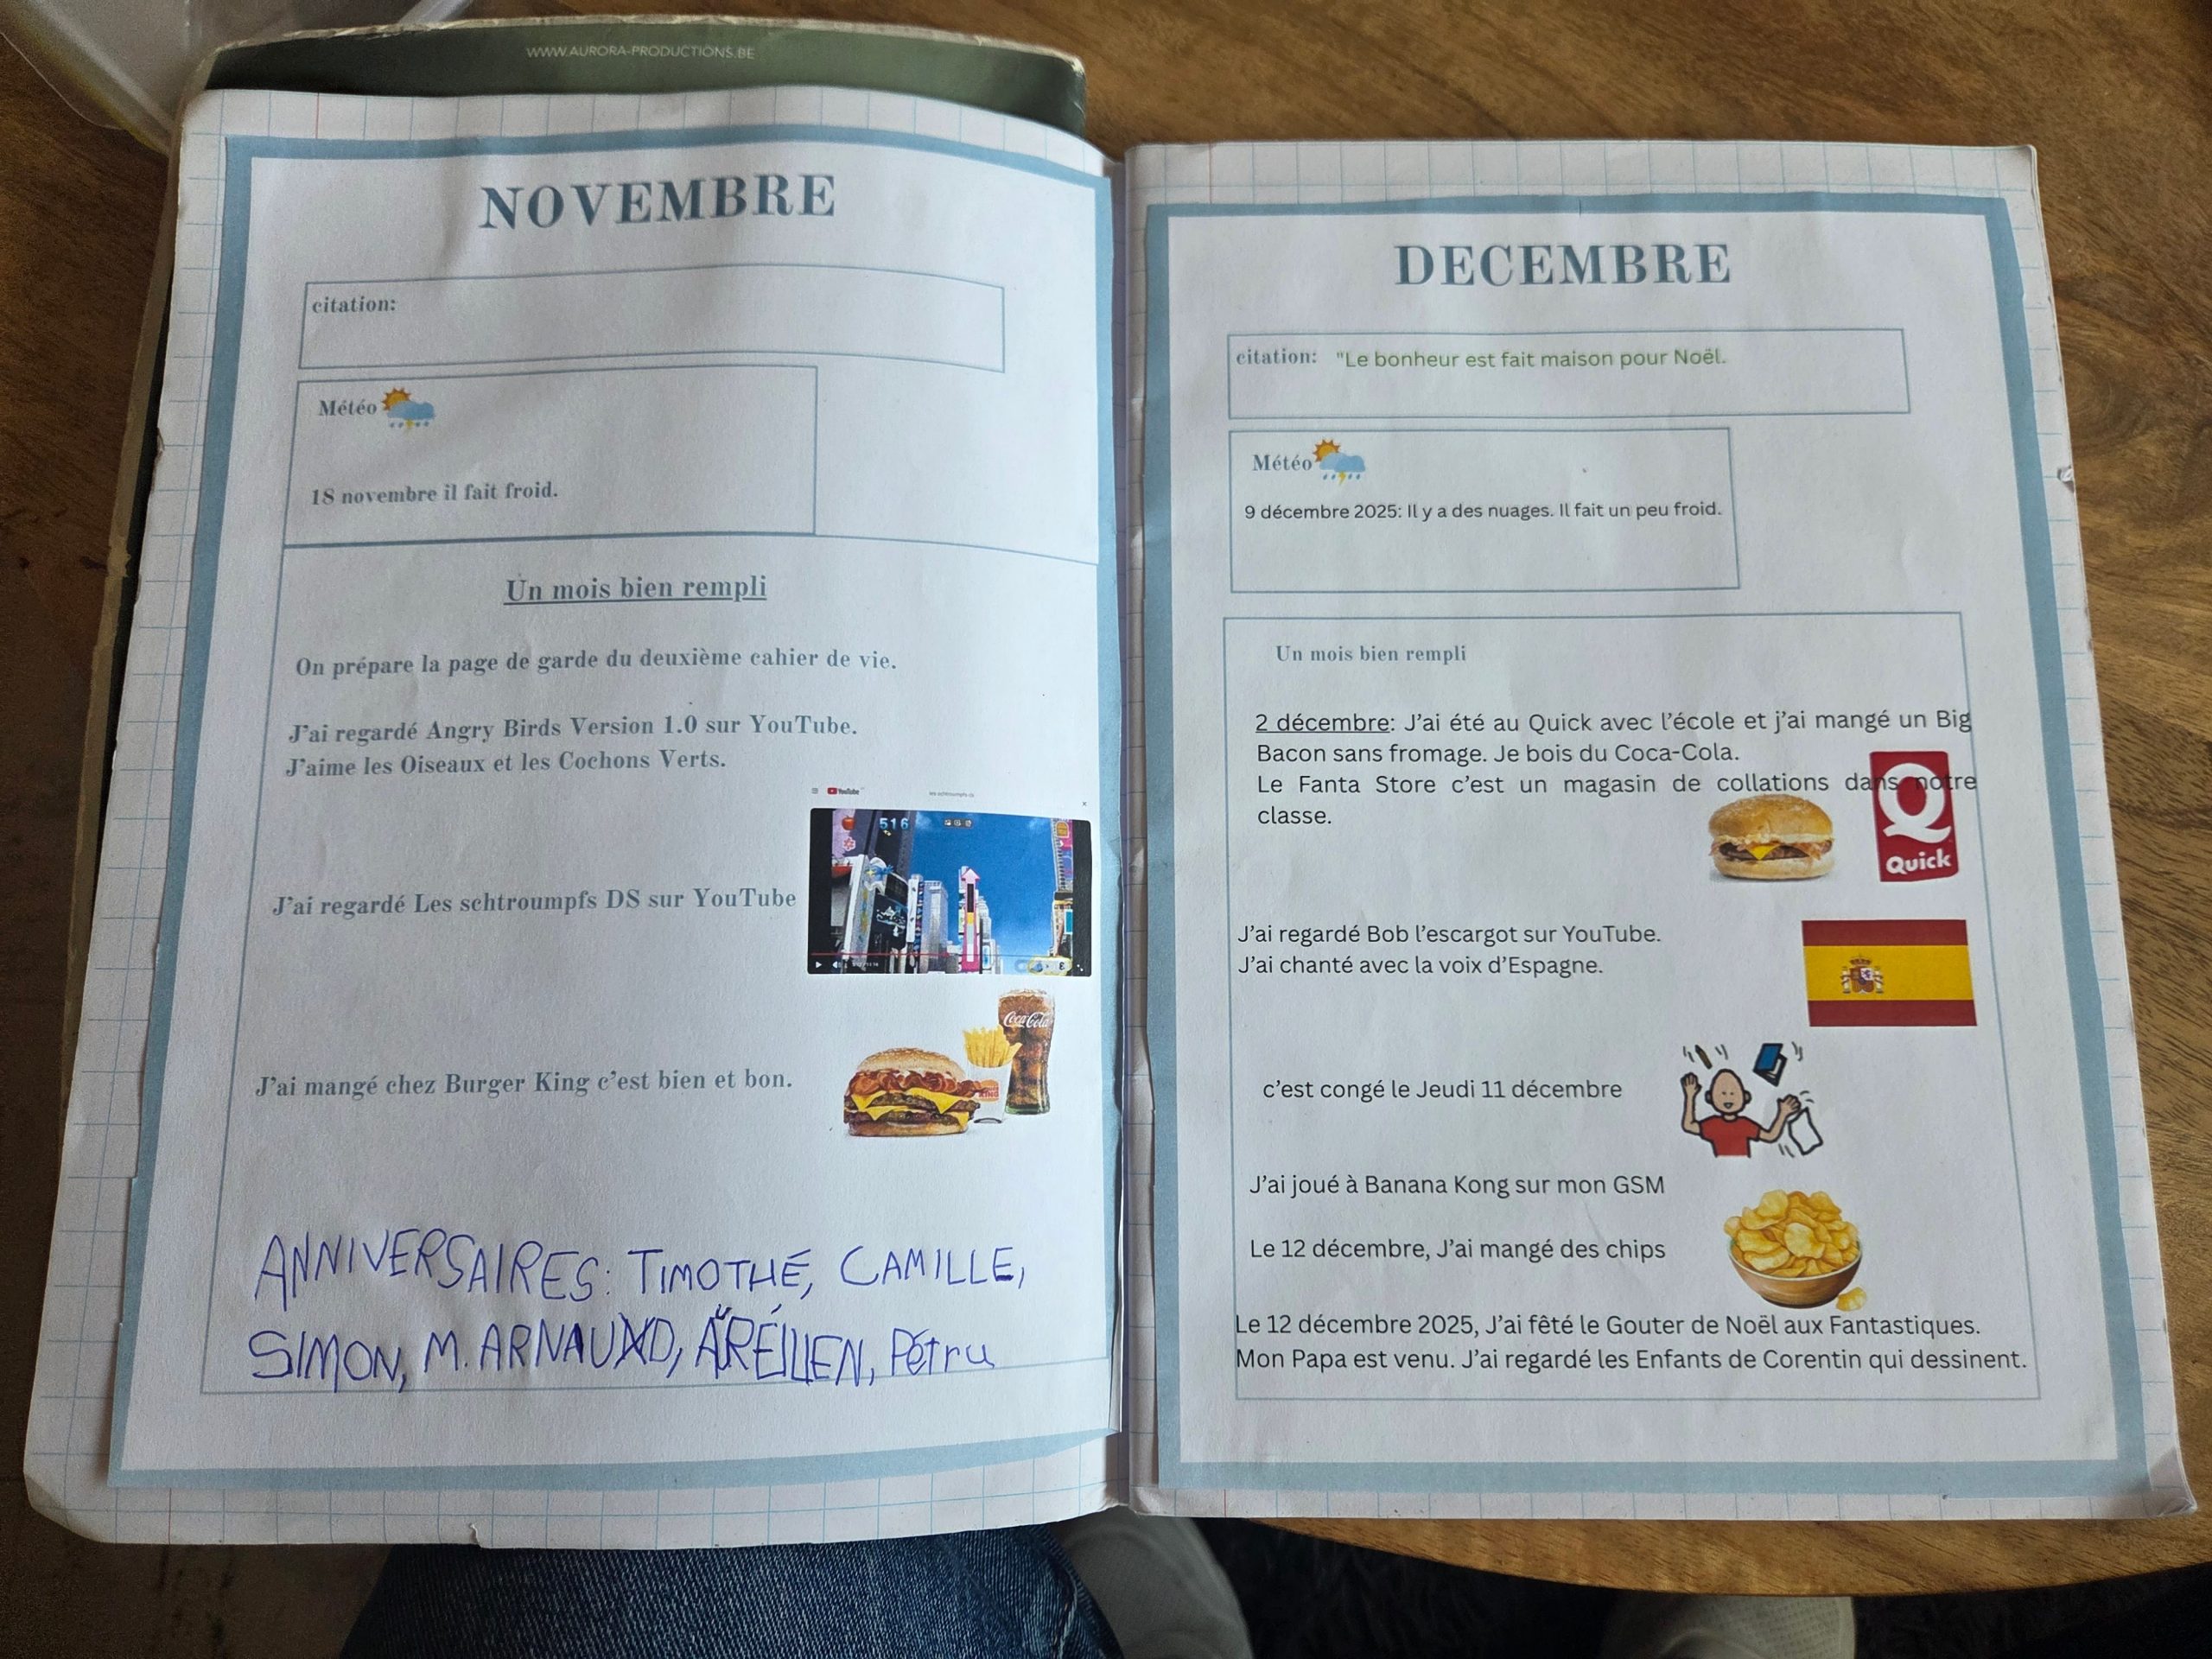 WWW.AURORA-PRODUCTIONS.BE
NOVEMBRE
citation:
Météo
18 novembre il fait froid.
Un mois bien rempli
On prépare la page de garde du deuxième cahier de vie.
J'ai regardé Angry Birds Version 1.0 sur YouTube.
J'aime les Oiseaux et les Cochons Verts.
YouTube
516
J'ai regardé Les schtroumpfs DS sur YouTube
Coca-Cola
J'ai mangé chez Burger King c'est bien et bon.
KING
ANNIVERSAIRES: TIMOTHÉ, CAMILLE,
SIMON, M. ARNAUD, AURÉLIEN, Pétru
DECEMBRE
citation: "Le bonheur est fait maison pour Noël.
Météo
9 décembre 2025: Il y a des nuages. Il fait un peu froid.
Un mois bien rempli
2 décembre: J'ai été au Quick avec l'école et j'ai mangé un Big
Bacon sans fromage. Je bois du Coca-Cola.
Le Fanta Store c'est un magasin de collations dans notre
classe.
Q
Quick
J'ai regardé Bob l'escargot sur YouTube.
J'ai chanté avec la voix d'Espagne.
c'est congé le Jeudi 11 décembre
J'ai joué à Banana Kong sur mon GSM
Le 12 décembre, J'ai mangé des chips
Le 12 décembre 2025, J'ai fêté le Gouter de Noël aux Fantastiques.
Mon Papa est venu. J'ai regardé les Enfants de Corentin qui dessinent.